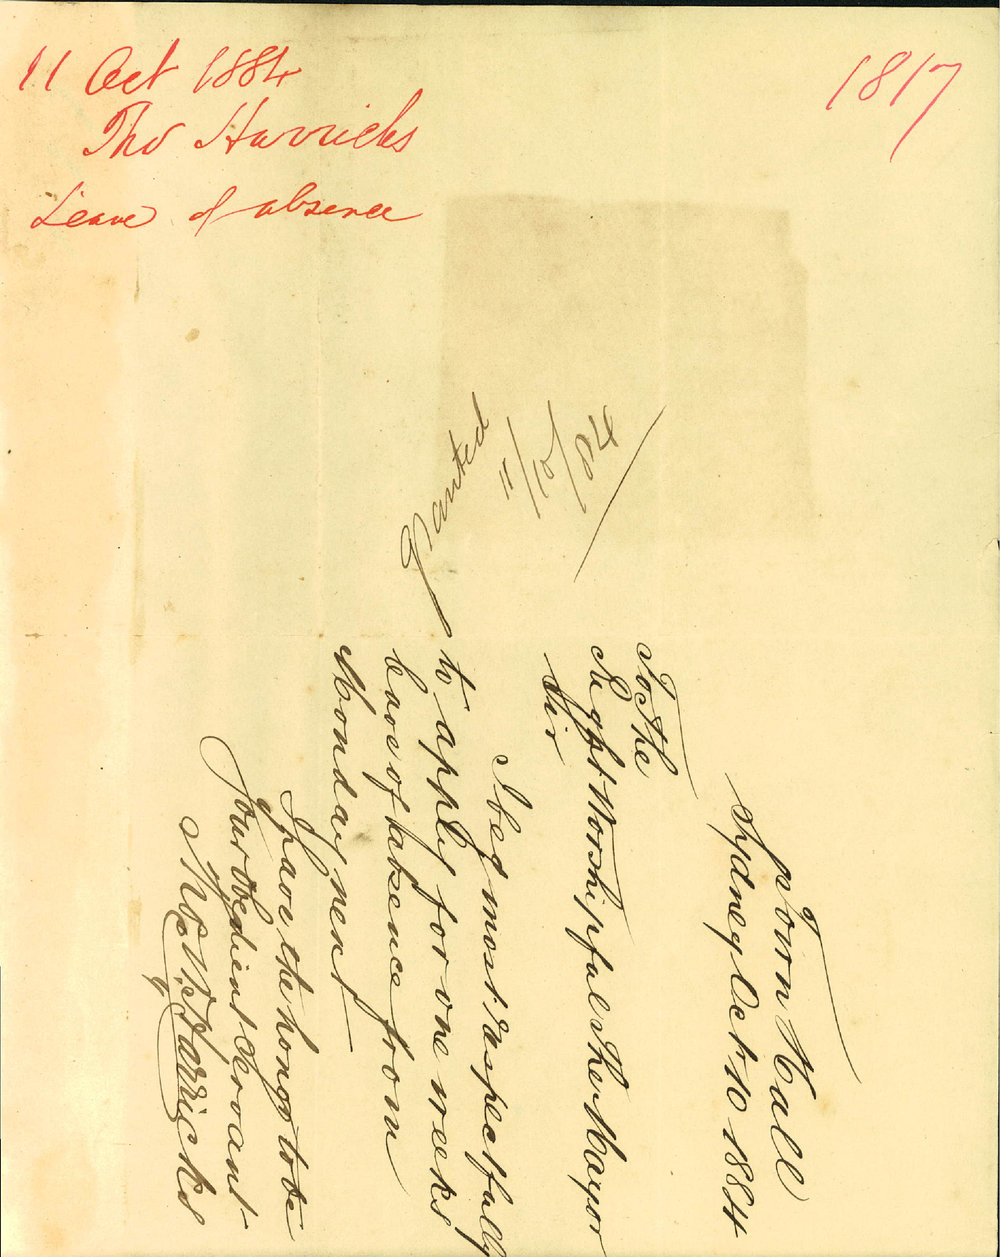 11 Oct 1884
Tho Harricks
Leave of absence
1817
Granted
11/10/84
Town Hall
Sydney Oct 10 1884
To the
Right Worshipful the Mayor
Sir
I beg most respectfully
to apply for one weeks
leave of absence from
Monday next
I have the honor to be
Your Obedient Servant
Harricks